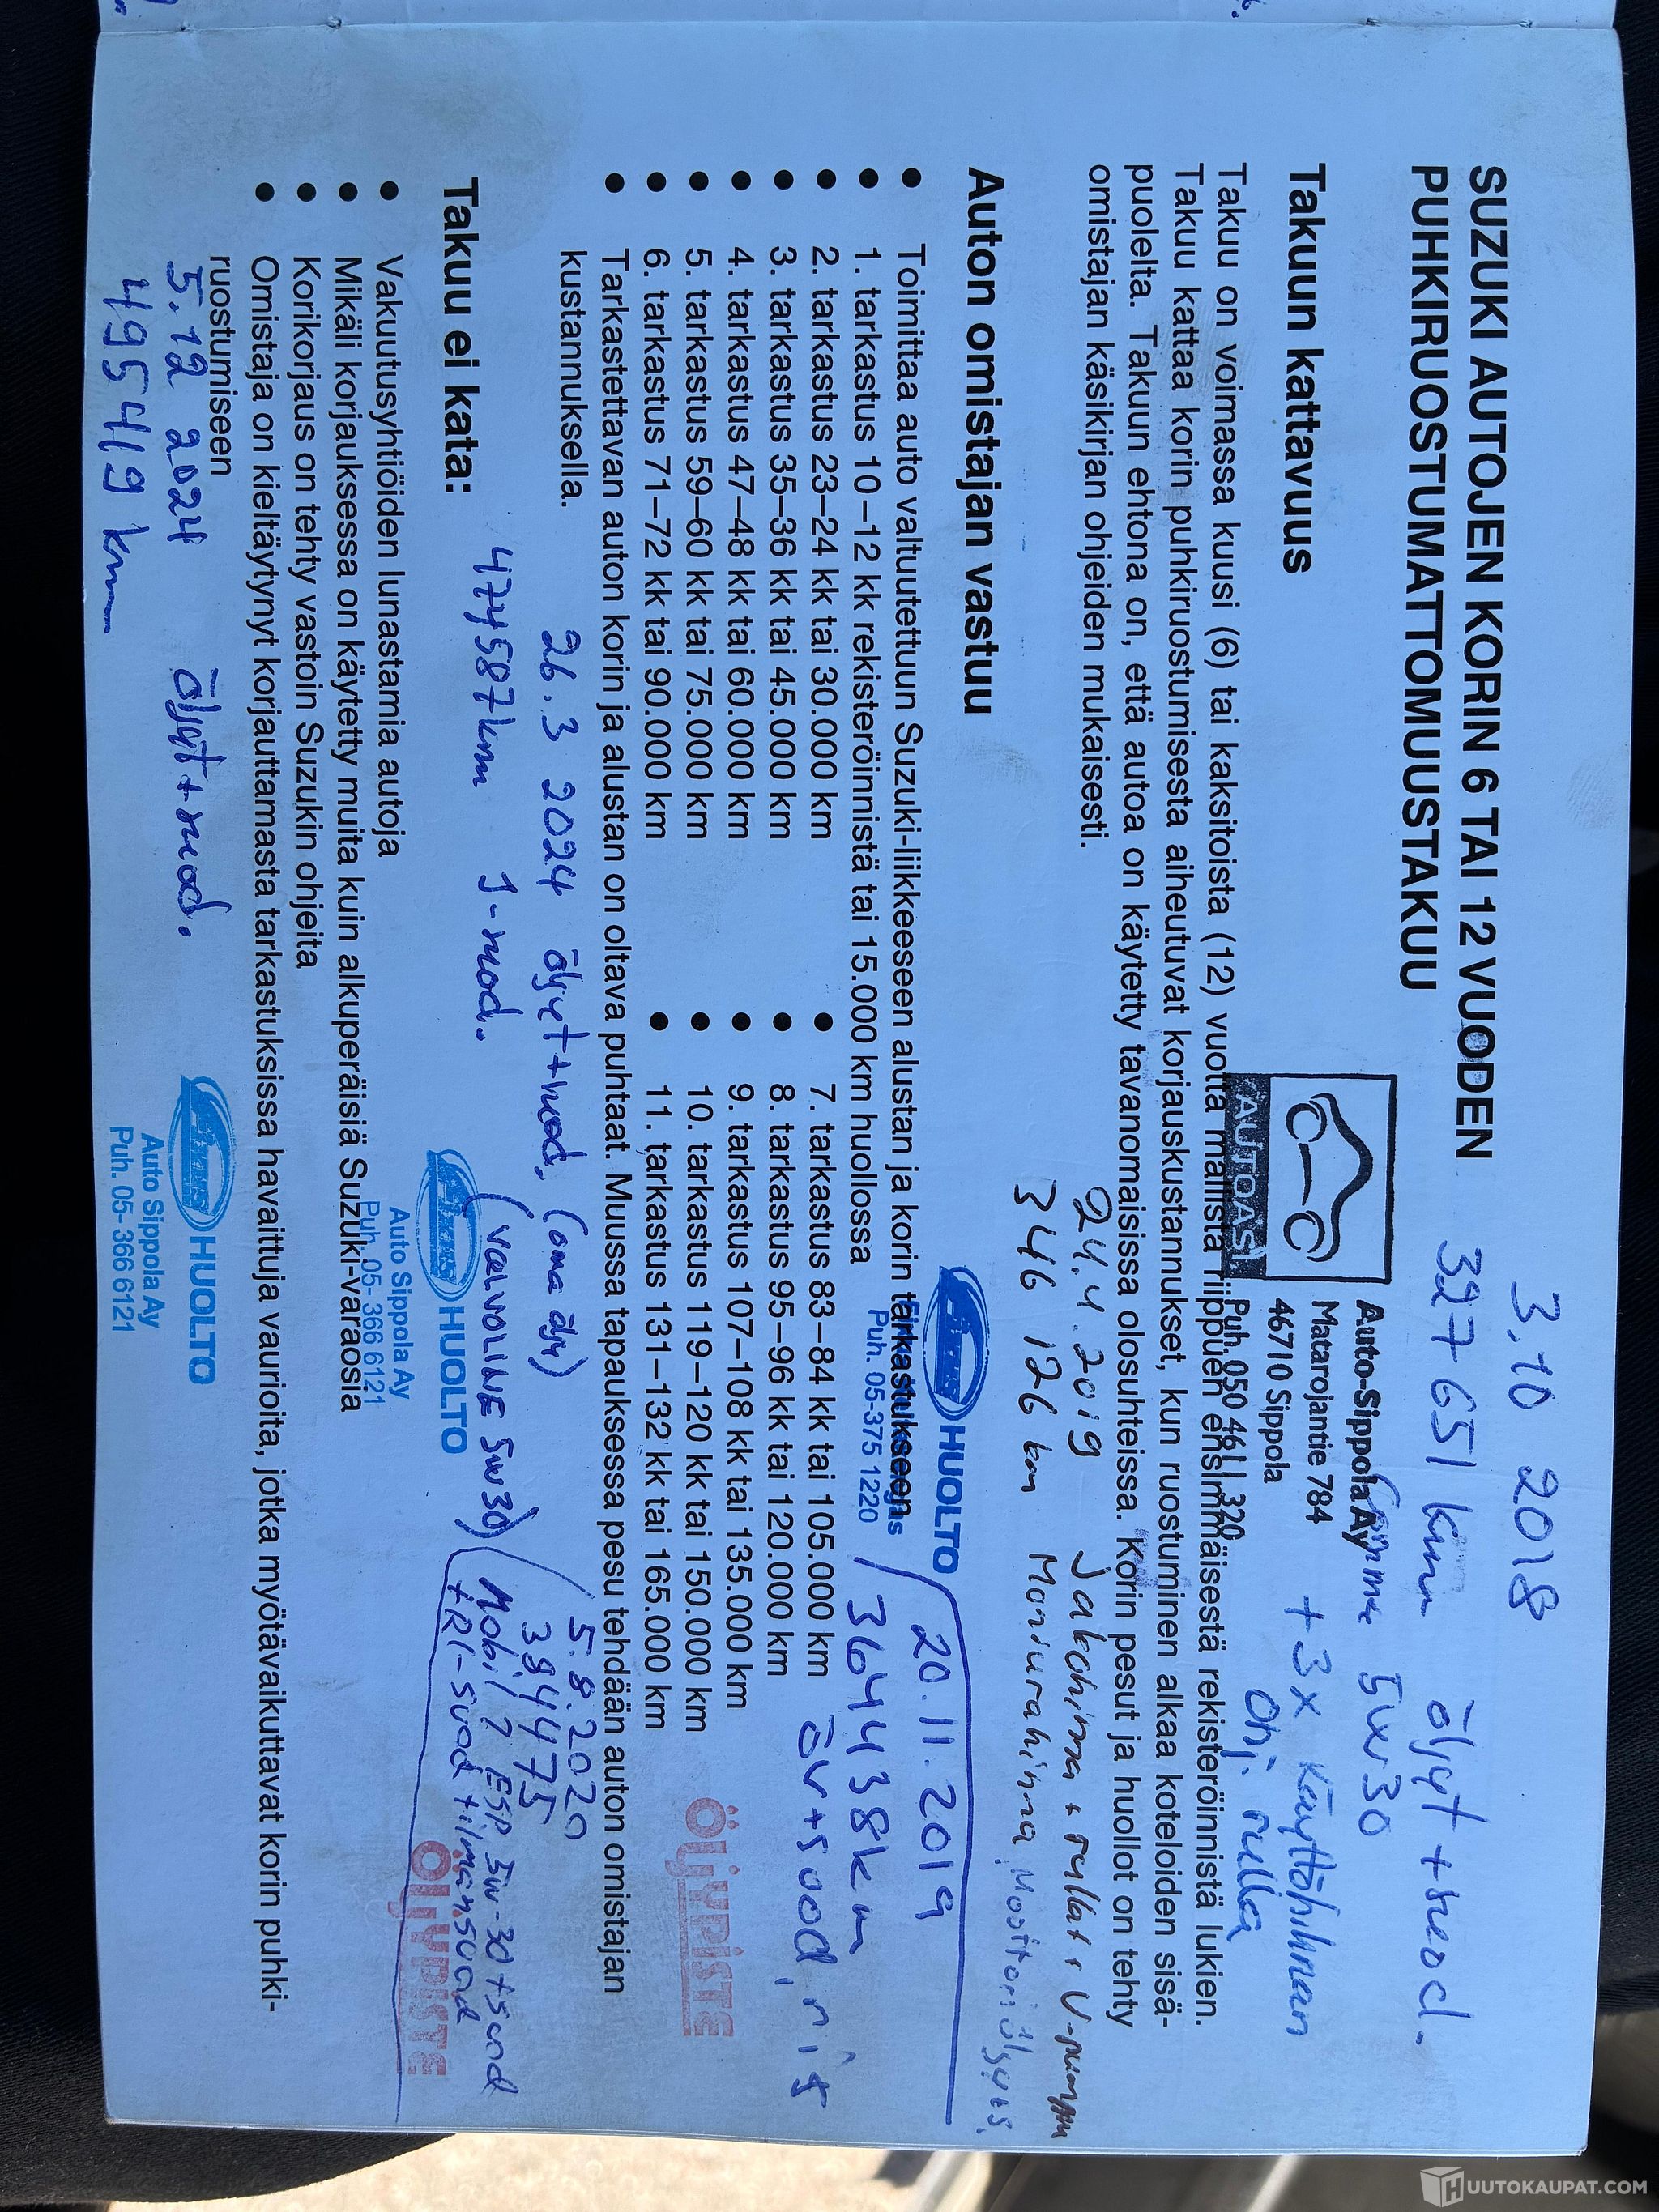 3.10 2018
327 651 km öljyt + suod.
5w30
+ 3 x käyttöhihnan
ohj. rulla
SUZUKI AUTOJEN KORIN 6 TAI 12 VUODEN
PUHKIRUOSTUMATTOMUUSTAKUU
AUTOASI
Auto-Sippola Ay
Matarojantie 784
46710 Sippola
Puh. 050 4611 320
Takuun kattavuus
Takuu on voimassa kuusi (6) tai kaksitoista (12) vuotta mallista riippuen ensimmäisestä rekisteröinnistä lukien.
Takuu kattaa korin puhkiruostumisesta aiheutuvat korjauskustannukset, kun ruostuminen alkaa koteloiden sisä-
puolelta. Takuun ehtona on, että autoa on käytetty tavanomaisissa olosuhteissa. Korin pesut ja huollot on tehty
omistajan käsikirjan ohjeiden mukaisesti.
24.4.2019 Jakohihna + rullat + V-pumppu
346 126 km Moniurahihna, Moottoriöljyt+s.
Auton omistajan vastuu
HUOLTO
Puh. 05-375 1220
20.11.2019
364438km
ÖV+suod,
Toimittaa auto valtuutettuun Suzuki-liikkeeseen alustan ja korin tarkastukseen
1. tarkastus 10–12 kk rekisteröinnistä tai 15.000 km huollossa
2. tarkastus 23–24 kk tai 30.000 km
3. tarkastus 35–36 kk tai 45.000 km
4. tarkastus 47–48 kk tai 60.000 km
5. tarkastus 59–60 kk tai 75.000 km
6. tarkastus 71–72 kk tai 90.000 km
7. tarkastus 83–84 kk tai 105.000 km
8. tarkastus 95–96 kk tai 120.000 km
9. tarkastus 107–108 kk tai 135.000 km
10. tarkastus 119–120 kk tai 150.000 km
11. tarkastus 131–132 kk tai 165.000 km
ÖLJYPISTE
Tarkastettavan auton korin ja alustan on oltava puhtaat. Muussa tapauksessa pesu tehdään auton omistajan
kustannuksella.
26.3 2024 öljyt+suod. (oma öljy)
474587km I-suod. (VALVOLINE 5w30)
5.8.2020
394475
Mobil 1 ESP 5w-30 + suod
+RI-suod + ilmansuod
ÖLJYPISTE
Takuu ei kata:
HUOLTO
Auto Sippola Ay
Puh. 05- 366 6121
Vakuutusyhtiöiden lunastamia autoja
Mikäli korjauksessa on käytetty muita kuin alkuperäisiä Suzuki-varaosia
Korikorjaus on tehty vastoin Suzukin ohjeita
Omistaja on kieltäytynyt korjauttamasta tarkastuksissa havaittuja vaurioita, jotka myötävaikuttavat korin puhki-
ruostumiseen
5.12 2024 öljyt+suod.
495419 km
HUOLTO
Auto Sippola Ay
Puh. 05- 366 6121
HUUTOKAUPAT.COM